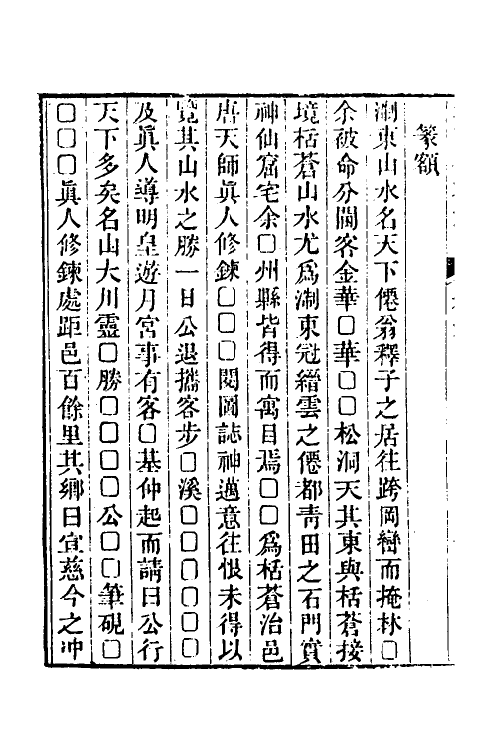 篆額
淛東山水名天下僊翁釋子之居往跨岡巒而掩林□
余被命分閫客金華□華□□松洞天其東與栝蒼接
境栝蒼山水尤爲淛東冠縉雲之僊都靑田之石門實
神仙窟宅余□州縣皆得而寓目焉□□爲栝蒼治邑
唐天師眞人修鍊□□□閱圖誌神邁意往恨未得以
覽其山水之勝一日公退攜客步□溪□□□□□□□
及眞人導明皇遊月宮事有客□基仲起而請曰公行
天下多矣名山大川靈□勝□□□□□公□□筆硯□
□□□眞人修鍊處距邑百餘里其鄉曰宣慈今之沖